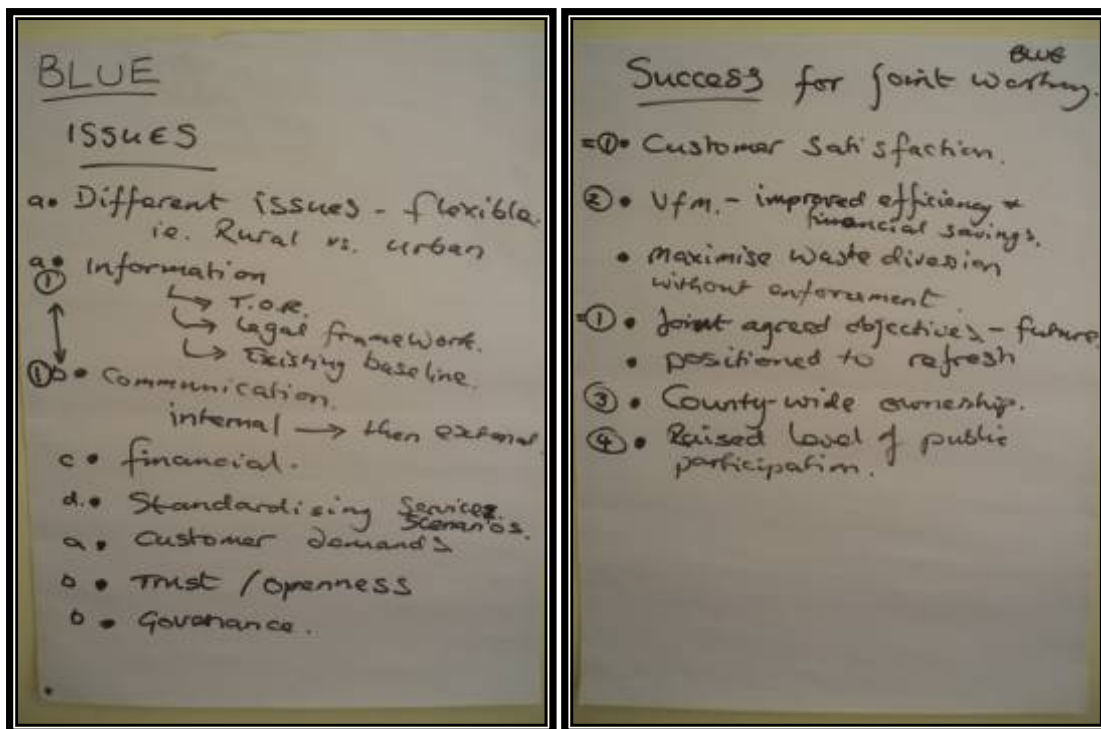 BLUE
ISSUES
a • Different issues - flexible.
ie. Rural vs. urban
a • Information
①
↳ T.O.R.
↳ Legal framework.
↳ Existing baseline.
① b • Communication.
internal → then external
c • financial.
d. • Standardising Services.
Scenarios.
a • Customer demands
b • Trust / openness
b • Governance.
BLUE
Success for joint working.
=① • Customer Satisfaction.
② • Vfm. - improved efficiency &
financial savings.
• Maximise waste diversion
without enforcement.
=① • Joint agreed objectives - future
• positioned to refresh
③ • County-wide ownership.
④ • Raised level of public
participation.